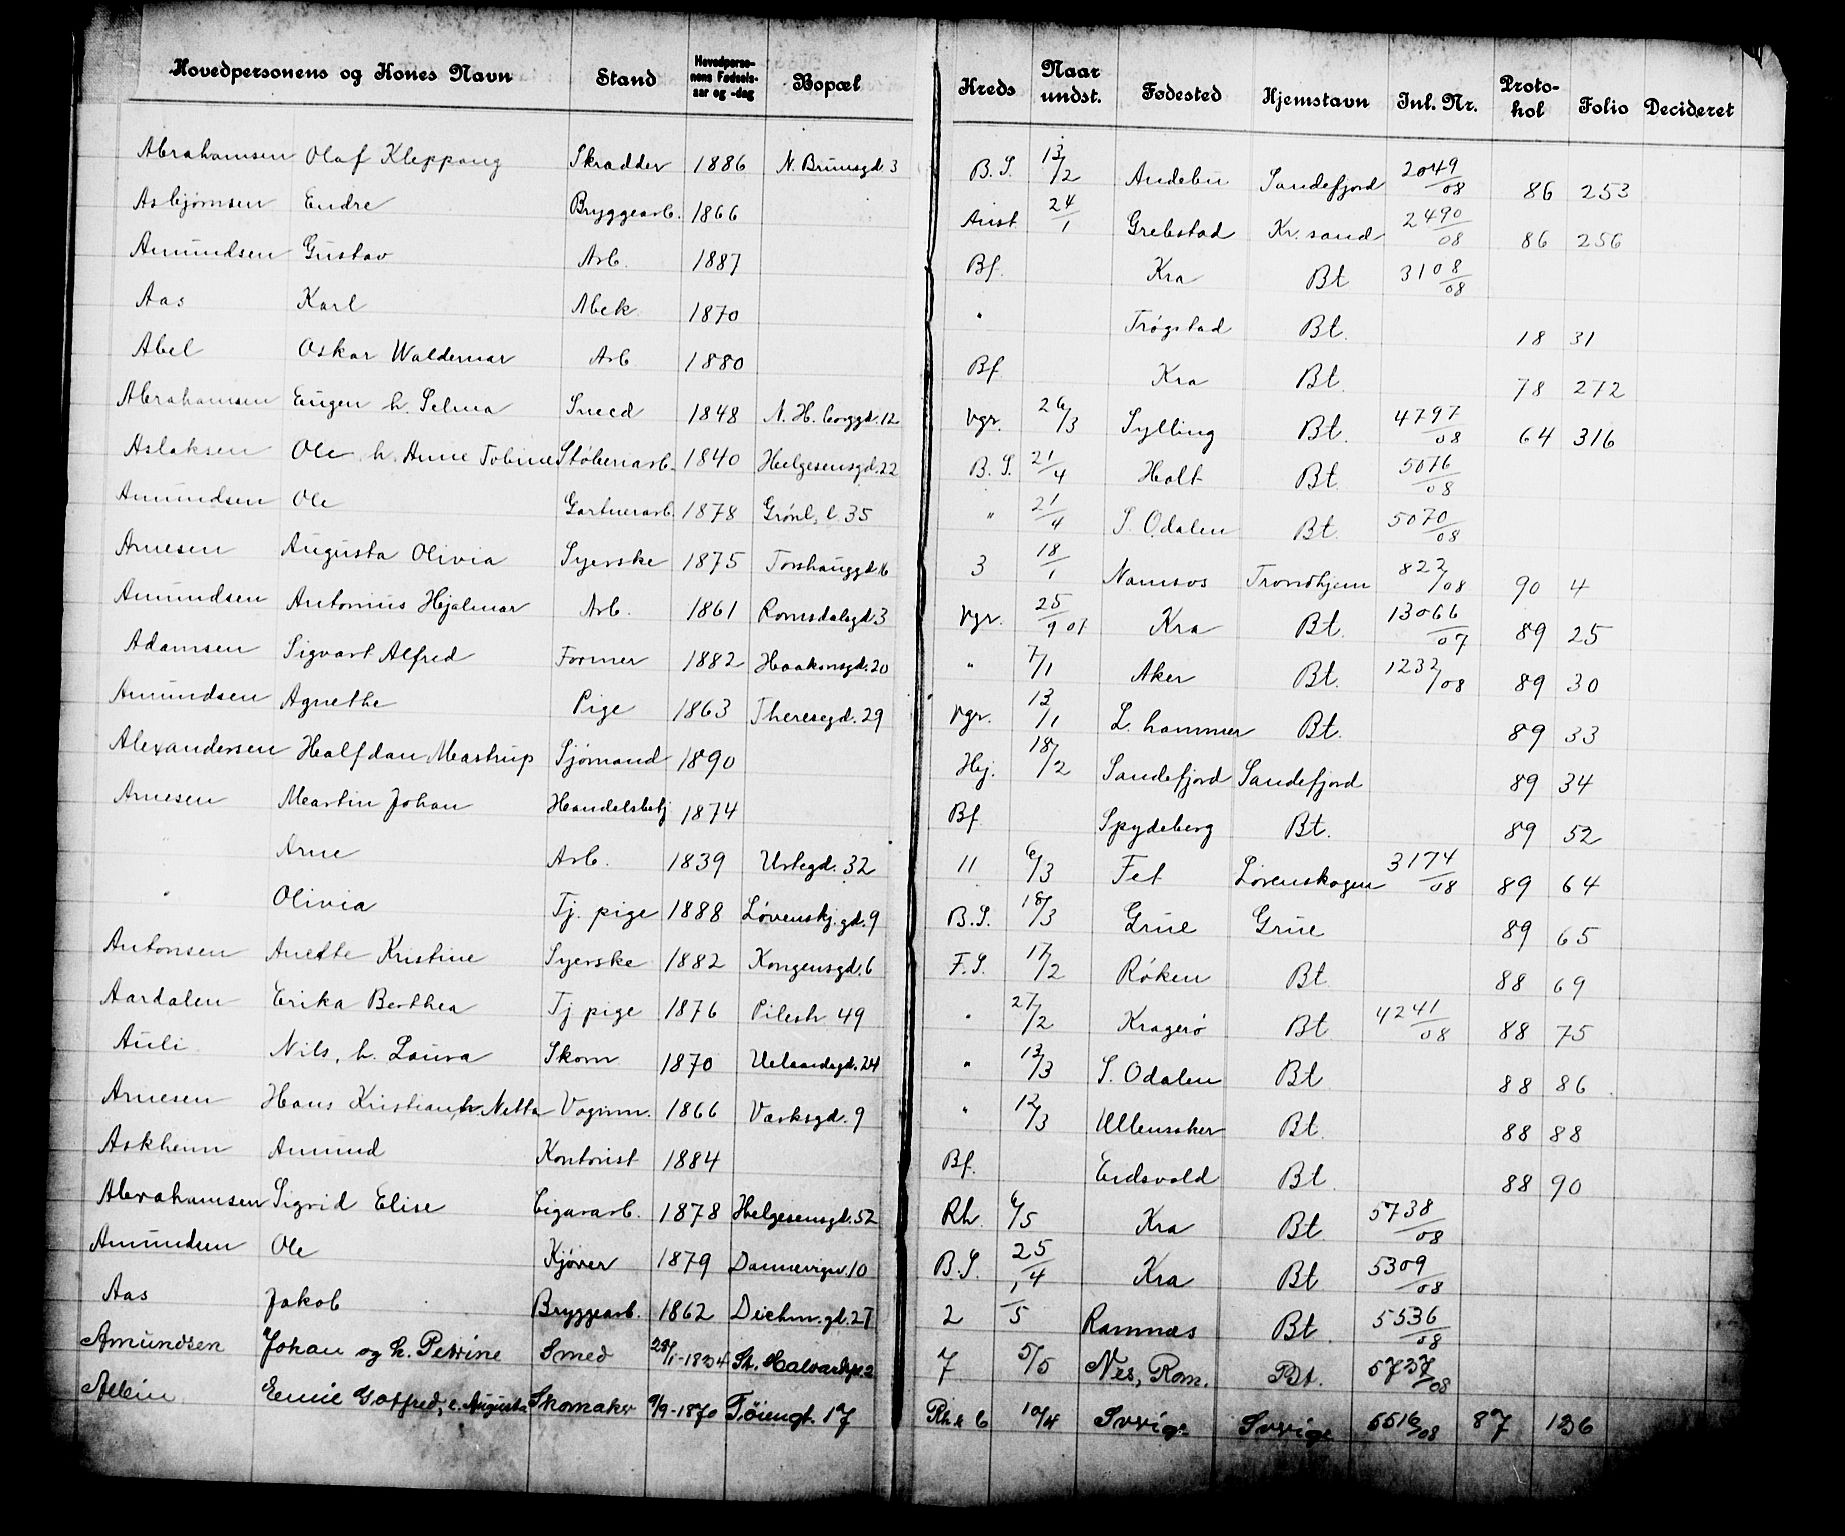 Hovedpersonens og Kones Navn Stand Hovedperso-nens Fødsels-aar og -dag Bopæl Kreds Naar undst. Fødested Hjemstavn Inl. Nr. Proto-kol Folio Decideret
Abrahamsen Olaf Kleppang Skrædder 1886 N. Brunsgd. 3 B. S. 13/2 Andebu Sandefjord 2049/08 86 253
Asbjørnsen Endre Bryggearb. 1866 Aust 24/1 Grebstad Kr. sand 2490/08 86 256
Amundsen Gustav Arb. 1887 Bf. Kra Bt 3108/08
Aas Karl Mek 1870 " Trøgstad Bt. 18 31
Abel Oskar Waldemar Arb 1880 Bf. Kra Bt. 78 272
Abrahamsen Eugen h. Selma Smed 1848 N. H. borggd. 12 Vgr. 26/3 Sylling Bt. 4797/08 64 316
Aslaksen Ole h. Anne Tobine Støberiarb. 1840 Helgesensgd. 22 B. S. 21/4 Holt Bt. 5076/08
Amundsen Ole Gartnerarb. 1878 Grønl. l. 35 " 21/4 S. Odalen Bt. 5070/08
Arnesen Augusta Olivia Syerske 1875 Torshauggd. 16 3 18/1 Namsos Trondhjem 822/08 90 4
Amundsen Antonius Hjalmar Arb. 1861 Romsdalsgd. 3 Vgr. 25/9 01 Kra Bt. 13066/07 89 25
Adamsen Sigvart Alfred Former 1882 Haakonsgd. 20 " 7/1 Aker Bt. 1232/08 89 30
Amundsen Agnethe Pige 1863 Theresegd. 29 Vgr. 13/1 L. hammer Bt. 89 33
Alexandersen Halfdan Mastrup Sjømand 1890 Hej. 18/2 Sandefjord Sandefjord 89 34
Arnesen Martin Johan Handelsbetj 1874 Bf. Spydeberg Bt. 89 52
" Arne Arb. 1839 Urtegd. 32 11 6/3 Fet Lørenskogen 3174/08 89 64
" Olivia Tj. pige 1888 Løvenskj. gd. 9 B. S. 18/3 Grue Grue 89 65
Antonsen Anette Kristine Syerske 1882 Kongensgd. 6 F. S. 17/2 Røken Bt. 88 69
Aardalen Erika Berthea Tj pige 1876 Pilestr 49 " 27/2 Kragerø Bt. 4241/08 88 75
Auli Nils, h. Laura Skom. 1870 Uelandsgd. 24 " 13/3 S. Odalen Bt. 88 86
Arnesen Hans Kristian, h. Netta Vognm. 1866 Værksgd. 9 " 12/3 Ullensaker Bt. 88 88
Askheim Amund Kontorist 1884 Bf. Eidsvold Bt. 88 90
Abrahamsen Sigrid Elise Cigararb. 1878 Helgesensgd. 52 Rh. 6/5 Kra Bt. 5738/08
Amundsen Ole Kjører 1879 Dannevigsv. 10 B. S. 25/4 Kra Bt 5309/08
Aas Jakob Bryggearb. 1862 Dichm. gd. 27 2 1/5 Ramnæs Bt. 5536/08
Amundsen Johan og h. Petrine Smed 1834 St. Halvardsgt. 2 7 5/5 Nes, Rom. Bt. 5737/08
Emil Gotfred, e. Augusta Skomaker 9/9-1870 Tøiengt. 17 Rh & 6 10/4 Sverige Sverige 5516/08 87 136